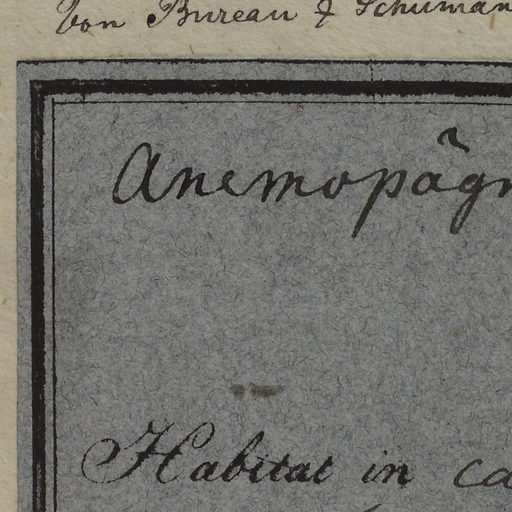 Von Bureau & Schuman
Anemopâgn
Habitat in ca